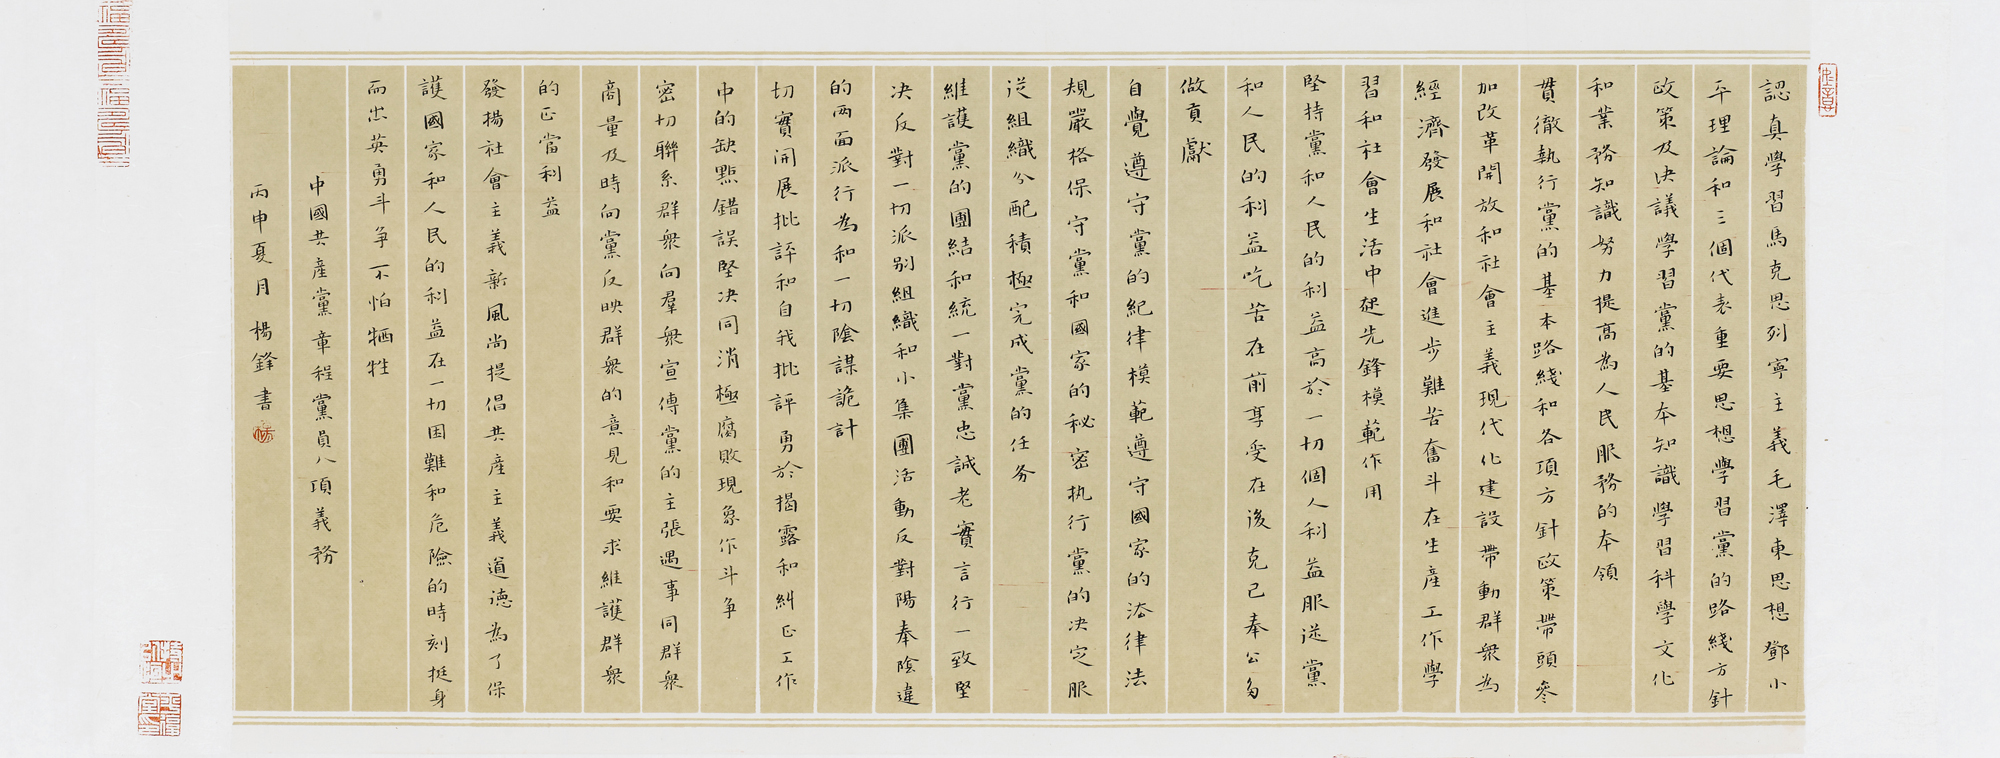 認真學習馬克思列寧主義毛澤東思想鄧小
平理論和三個代表重要思想學習黨的路綫方針
政策及決議學習黨的基本知識學習科學文化
和業務知識努力提高為人民服務的本領
貫徹執行黨的基本路綫和各項方針政策帶頭參
加改革開放和社會主義現代化建設帶動群衆為
經濟發展和社會進步艱苦奮斗在生產工作學
習和社會生活中起先鋒模範作用
堅持黨和人民的利益高於一切個人利益服從黨
和人民的利益吃苦在前享受在後克己奉公多
做貢獻
自覺遵守黨的紀律模範遵守國家的法律法
規嚴格保守黨和國家的秘密执行黨的决定服
从組織分配積極完成黨的任务
維護黨的團結和統一對黨忠誠老實言行一致堅
决反對一切派别組織和小集團活動反對陽奉陰違
的两面派行為和一切陰謀詭計
切實開展批評和自我批評勇於揭露和糾正工作
中的缺點錯誤堅决同消極腐敗現象作斗争
密切聯系群衆向羣衆宣傳黨的主張遇事同群衆
商量及時向黨反映群衆的意見和要求維護群衆
的正當利益
發揚社會主義新風尚提倡共產主義道德為了保
護國家和人民的利益在一切困難和危險的時刻挺身
而出英勇斗争不怕牺牲
中國共產黨章程黨員八項義務
丙申夏月楊鋒書